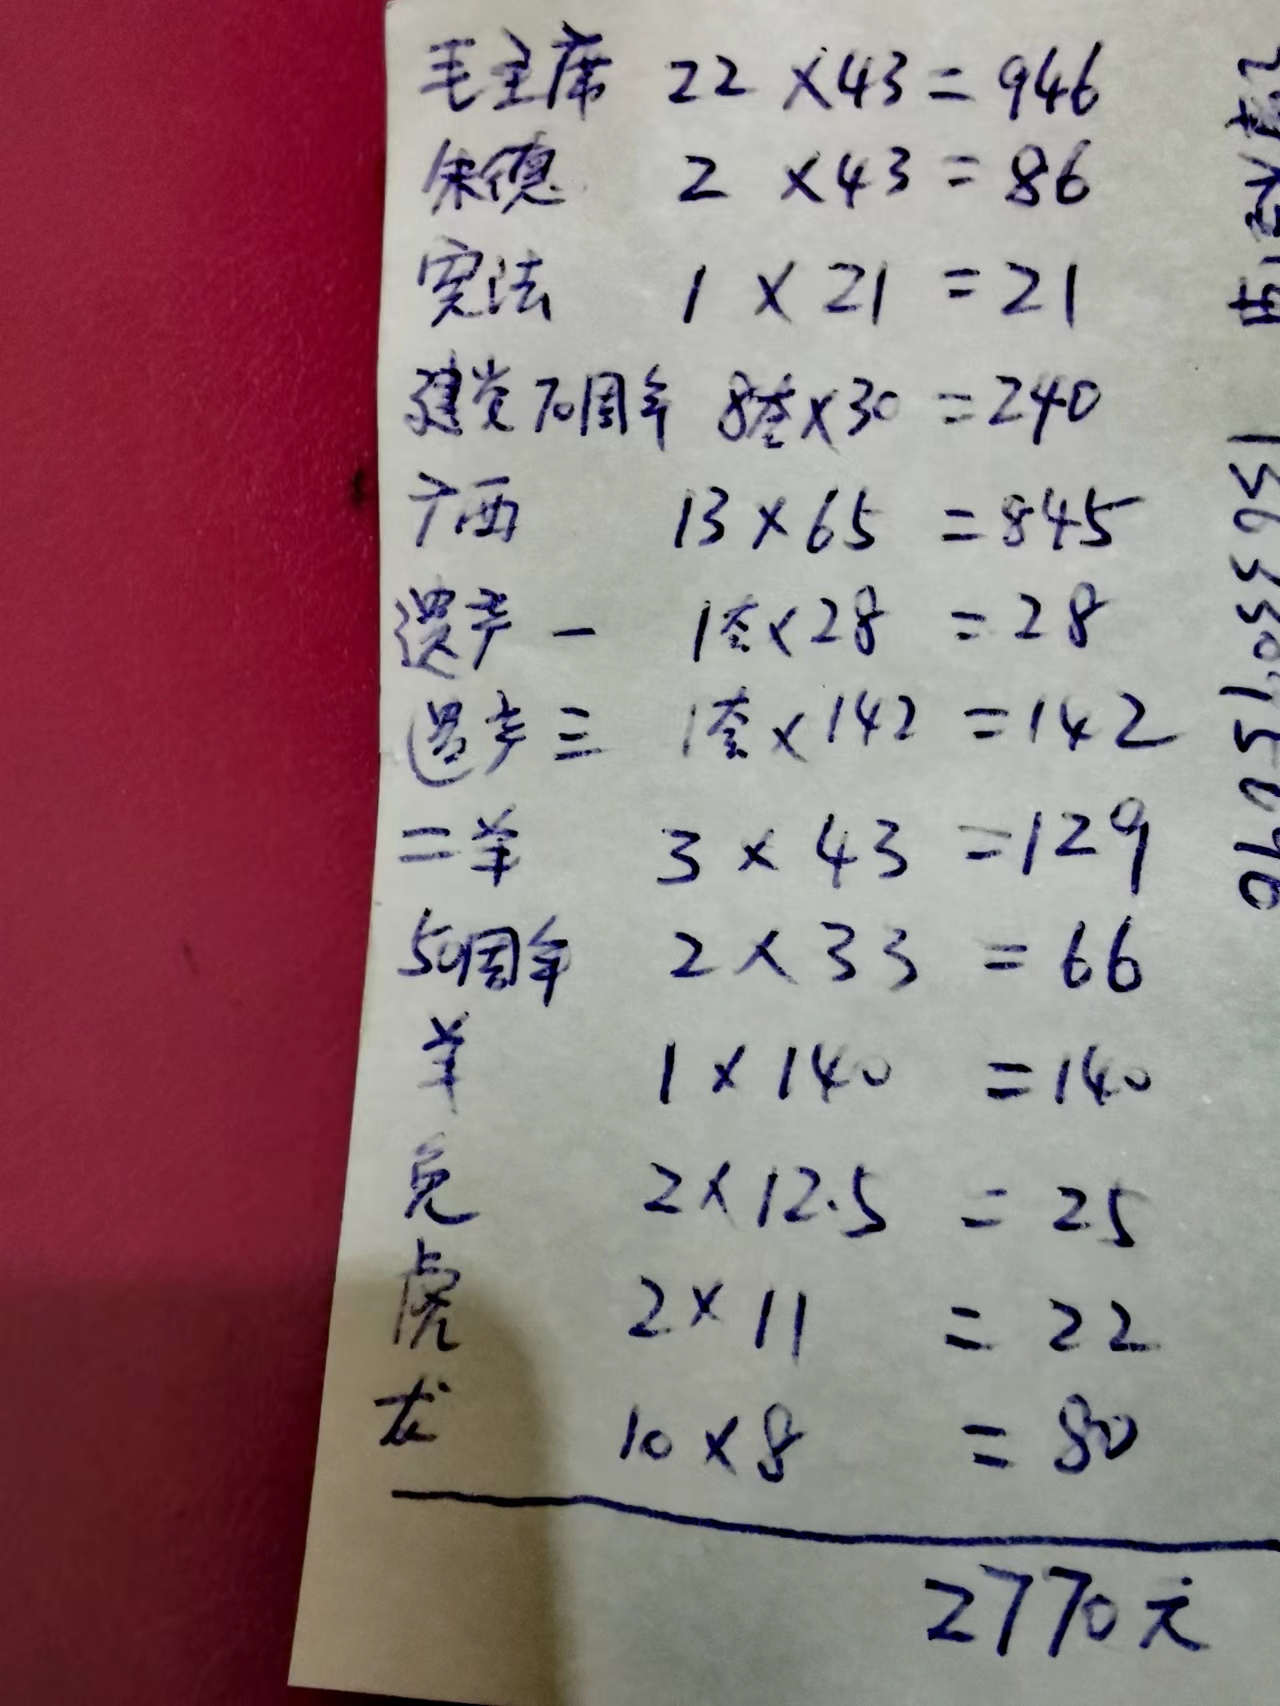 毛主席 22 ×43 = 946
朱德 2 ×43 = 86
宪法 1 × 21 = 21
建党70周年 8套×30 =240
广西 13×65 =845
遗产一 1套×28 = 28
遗产三 1套×142 =142
二羊 3×43 =129
50周年 2×33 = 66
羊 1×140 =140
兔 2×12.5 = 25
虎 2×11 = 22
龙 10×8 = 80
2770元